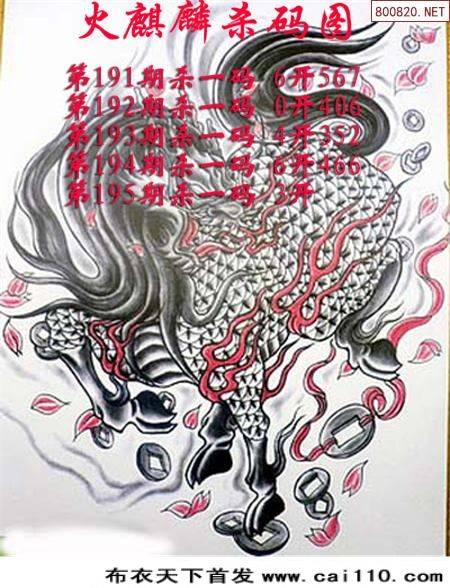 火麒麟杀码图
800820.NET
第191期杀一码 6开567
第192期杀一码 0开406
第193期杀一码 4开352
第194期杀一码 6开466
第195期杀一码 3开
布衣天下首发 www.cai110.com